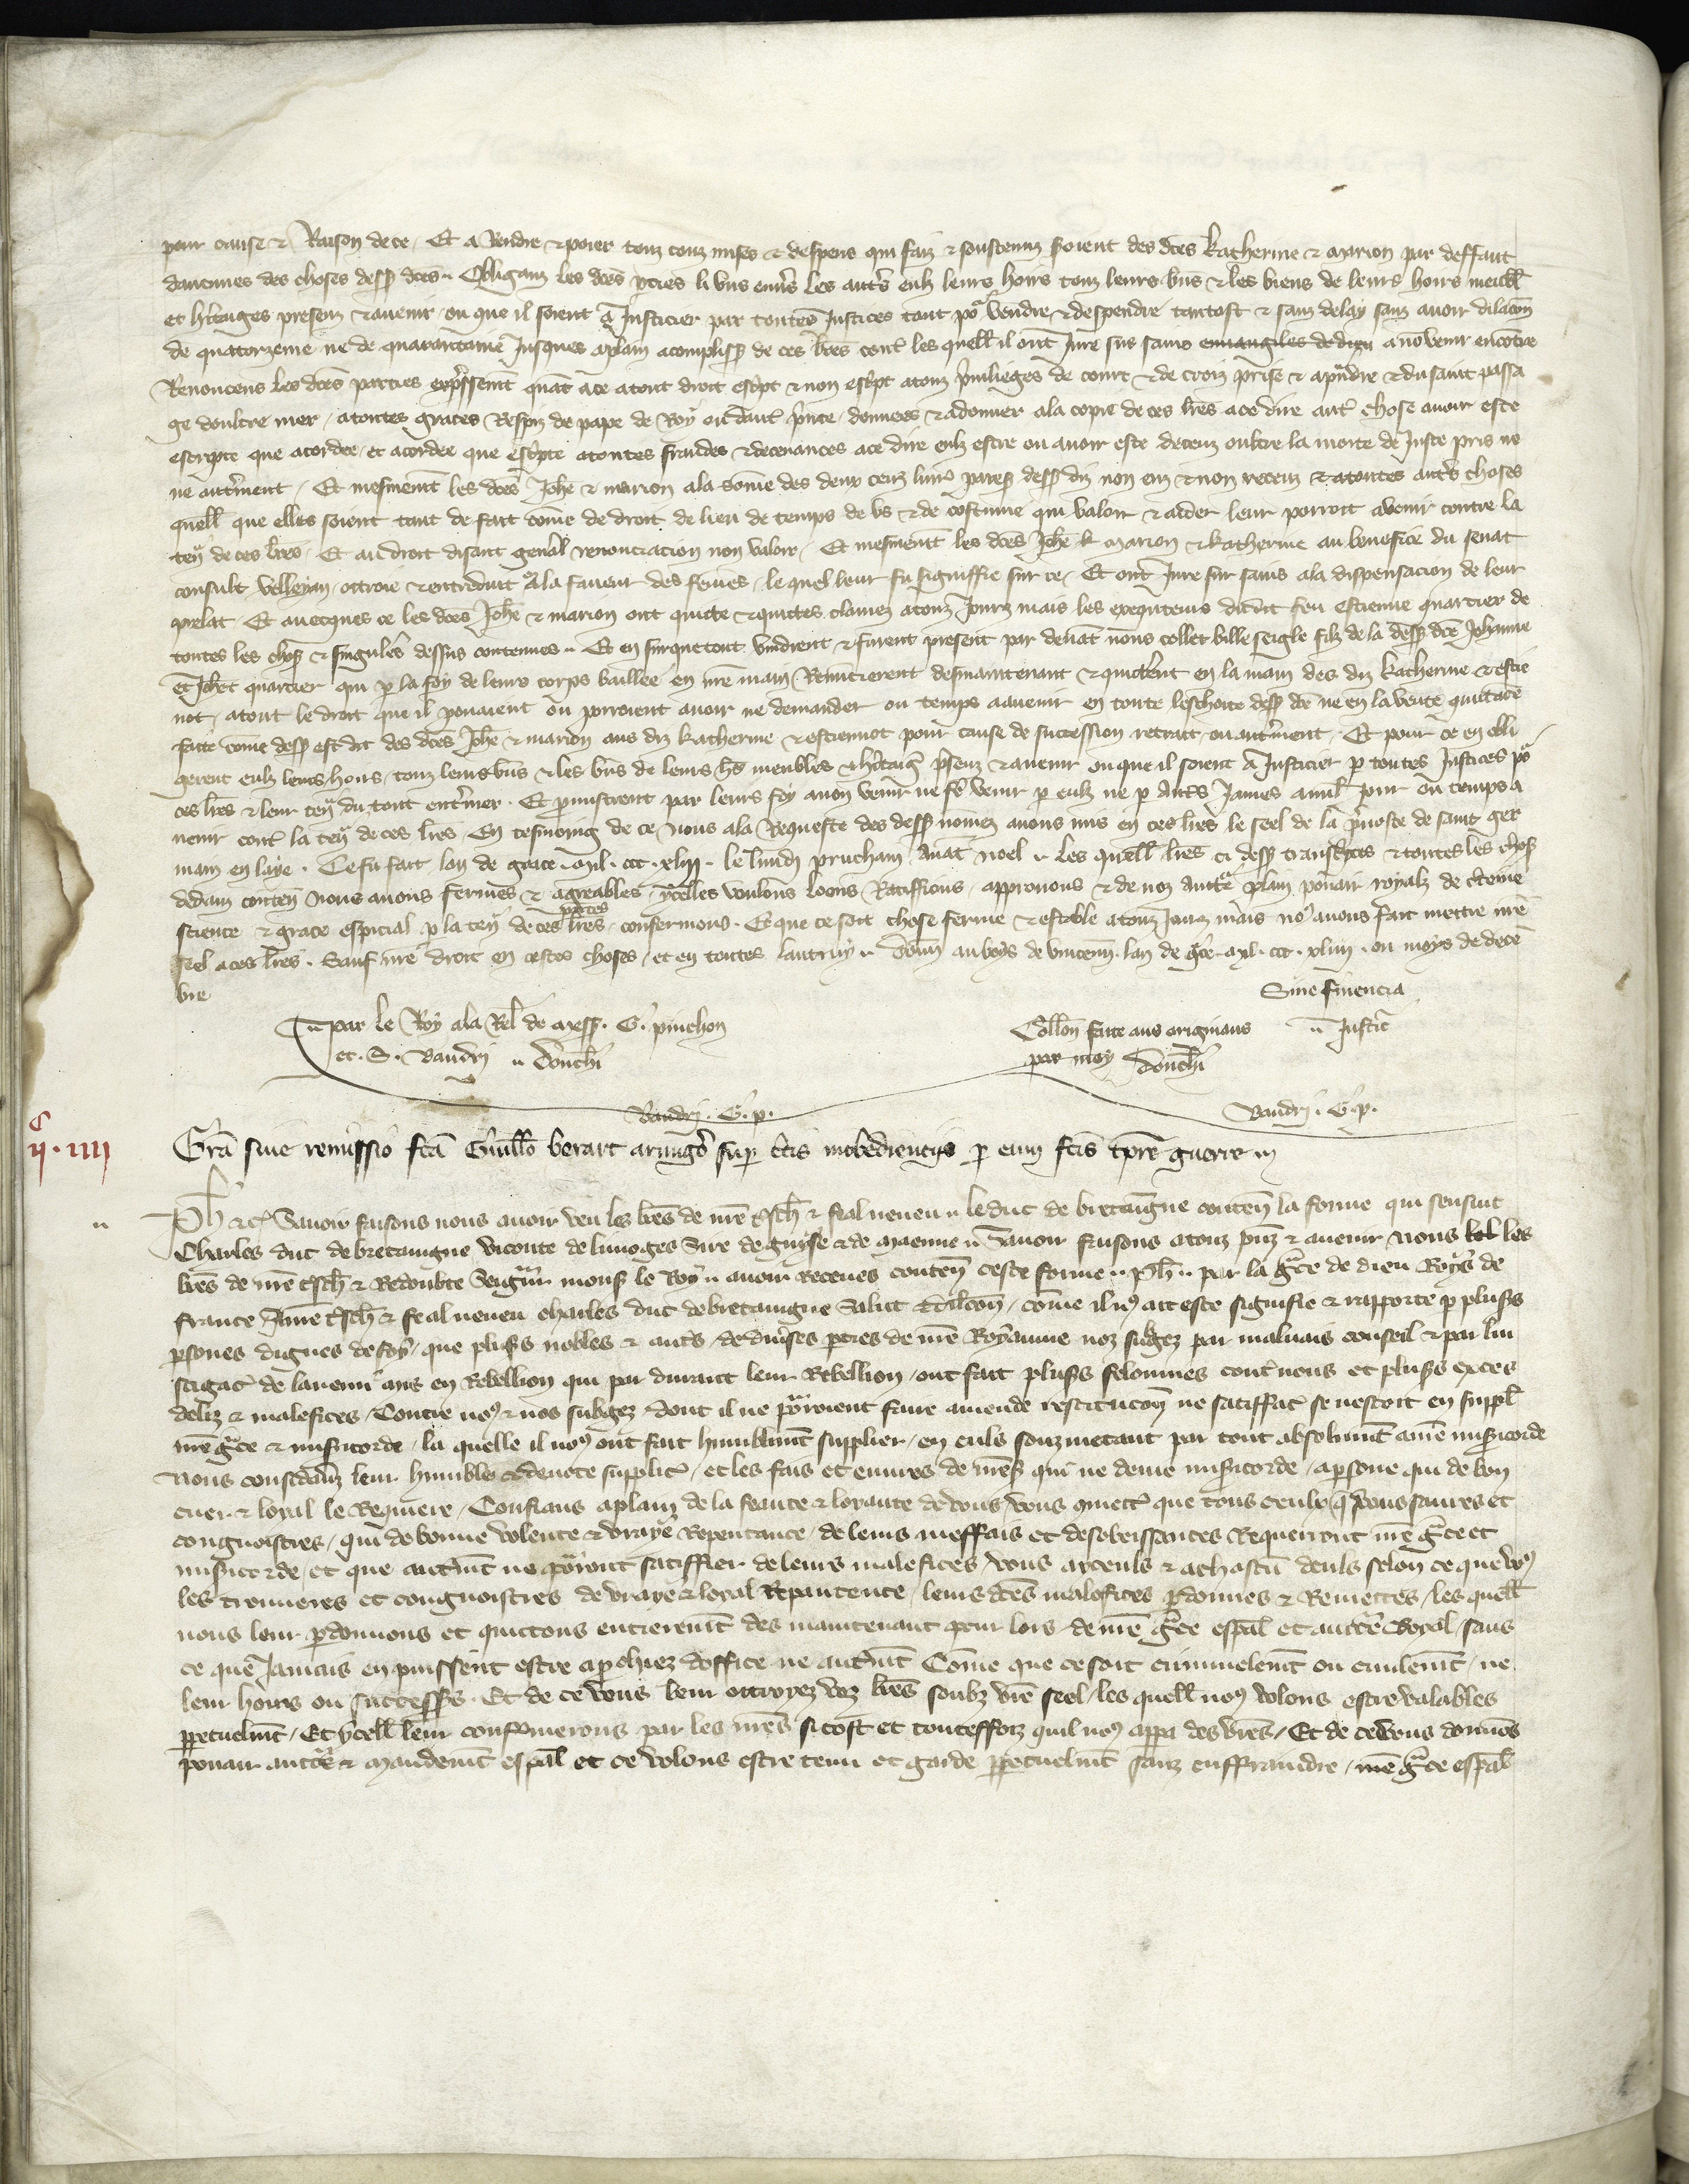 pour cause & Raison de ce / Et a Rendre & poier touz couz mises & despens qui faiz & soustenuz seroient des dces Katherine & Marion par deffaut
daucunes des choses dess dces .. Obliganz les dces pties li uns envs les autes eulz leurs hoirs touz leurs bns & les biens de leurs hoirs meubl
et hitaiges presenz & avenir ou que il soient a Justicier par toutes Justices tout po vendre & despendre tantost & sanz delay sanz avoir dilacon
de quatorzeine ne de quarantaine Jusques aplain acompliss de ces lres cont les quell il ont Jure sus sains euvangiles de dieu a non venir encontre
Renoncens les dces parties expressemt quat ace atout droit escpt & non escpt atouz pvilieges de court & de croiz prise & apndre & du saint passa
ge doultre mer / atoutes graces Respiz de pape de Roy ou daut pnce / donnees & adonner ala copie de ces lres ace dire aut chose avoir este
escripte que acordee / et acordee que escpte atoutes fraudes & decevances ace dire eulz estre ou avoir este deceuz oultre la moite de Juste pris ne
ne autment / Et mesmemt les dces Johe & marion ala some des deux cenz livres pares dess diz non euz & non receuz & atoutes autes choses
quell que elles soient tant de fait come de droit de lieu de temps de us & de coustume qui valoir & aider leur porroit avenir contre la
ten de ces lres / Et au droit disant genal renonciacion non valoir / Et mesmemt les dces Johe k marion & katherine au benefice du senat
consult velleyan / ottroie & entreduit a la faveur des femes / le quel leur fu signiffie sur ce / Et ont Jure sur sains ala dispensacion de leur
prelat Et avecques ce les dces Johe & marion ont quicte & quictes clamez atouz Jourz mais les exequteurs dudit feu estienne quartier de
toutes les chos & singulers dessus contenues .. Et en surquetout vindrent & furent present par devat nous collet bille seigle filz de la dess dce Johanne
et Johet quartier qui p la foy de leurs corps baillee en nre main Renuncierent desmaintenant & quicterent en la main des diz katherine & estie
not / atout le droit que il pouaient ou porroient avoir ne demander ou temps aavenir en toute leschoite dess dce ne en la vente quictace
faite come dess est dit des dces Johe & marion aus diz katherine & estiennot pour cause de succession retrait / ou autment / Et pour ce en obli
gerent eulz leurs hoirs / touz leurs bns & les bns de leurs hrs meubles & hitaiges psenz & avenir ou que il soient a Justicier p toutes Justices po
ces lres & leur ten du tout entiner . Et pmistrent par leurs foy anon venir ne fe venir p eulz ne p autes James a nul jour ou temps a
venir cont la ten de ces lres En tesmoing de ce nous ala Requeste des dess nomez avons mis en ces lres le seel de la pvoste de saint ger
main en laye . Ce fu fait lan de grace . Mil . ccc . xliij . le lundi prucham Avat noel .. Les quell lres ci dess transcptes & toutes les chos
dedans conten Nous avons fermes & agreables / ycelles voulons loons Ratiffions / approuvons & de noz autte plain povoir royalz de ctaine
science & grace especial p la ten de ces lres / confermons . Et que ce soit chose ferme & estable atouz Jourz mais nous avons fait mettre nre
seel aces lres . Sauf nre droit en cestes choses / et en toutes lautruy .. Donn au boys de vincenn . lan de gce . Mil . ccc . xliiij . ou moys de dece
bre
Sine financia
Par le Roy ala Rel de mess . G . pinchon Collon faite aus originaus .. Justic
et . S . Baudri .. Donchi par moy Donchi
Baudri . G . p . Baudri . G . p .
c
ij . iiij
Gra sive remissio fca Guillo berart armigo sup ctis inobedienciis p eum fcis tpre guerre
Ph &c Savoir faisons nous avoir veu les lres de nre tsch & feal neveu .. le duc de bretaingne conten la forme qui sensuit
Charles duc de bretaingne viconte de limoges Sire de guyse & de Maenne .. Savoir faisons atouz psnz & avenir Nous les
lres de nre tsch & Redoubte Seigneur mons le Roy .. avoir Receues conten ceste forme .. Ph .. par la gce de dieu Roys de
france Anre tsch & feal neveu charles duc de bretaingne Salut & dilcon / come il nous ait este signifie & rapporte p pluss
psones dignes de foy / que pluss nobles & autes / de diverses pties de nre Royaume noz subgez par malvais conseil & par lin
stigac de lanemi ans en Rebellion qui par durant leur Rebellion / ont fait pluss felonnies cont nous et pluss exces
deliz & malefices / Contre nous & nos subgez dont il ne porroient faire amende restitucon ne satiffac se nestoit en suppl
nre gce & misicorde / la quelle il nous ont fait humblemt supplier / en euls souzmetant par tout absolumt anre misicorde
Nous considans leur humble & devote supplic / et les fais et euvres de mess qui ne denie misicorde / apsone qui de bon
cuer & loyal le Requiere / Confians aplain de la feaute & loyaute de vous / vous mett que tous ceulx que vous saures et
congnoistres / qui de bonne volente & vraye Repentance / de leurs meffais et desobeissances Requerront nre gce et
misicorde / et que autmt ne porront satiffier de leurs malefices / vous aiceuls & achascu deuls selon ce que vous
les trouveres et congnoistres de vraye & loyal Repantence / leurs dces malefices pdonnes & Remettes / les quell
nous leur pdonnons et quictons entieremt des maintenant pour lors / de nre gce espal et auctte Royal / sans
ce que Jamais en puissent estre apchiez doffice ne autmt Come que ce soit criminelemt ou civilemt / ne
leur hoirs ou success . Et de ce vous leur ottroyez voz lres soubz vre seel / les quell nous volons estre valables
ppetuelmt / Et ycell leur confirmerons par les nres si tost et toutesfoiz quil nous appa des vres / Et de ce vous donnons
povair autte & Mandemt espal et ce volons estre tenu et garde ppetuelmt sanz enffraindre / nre gce espal